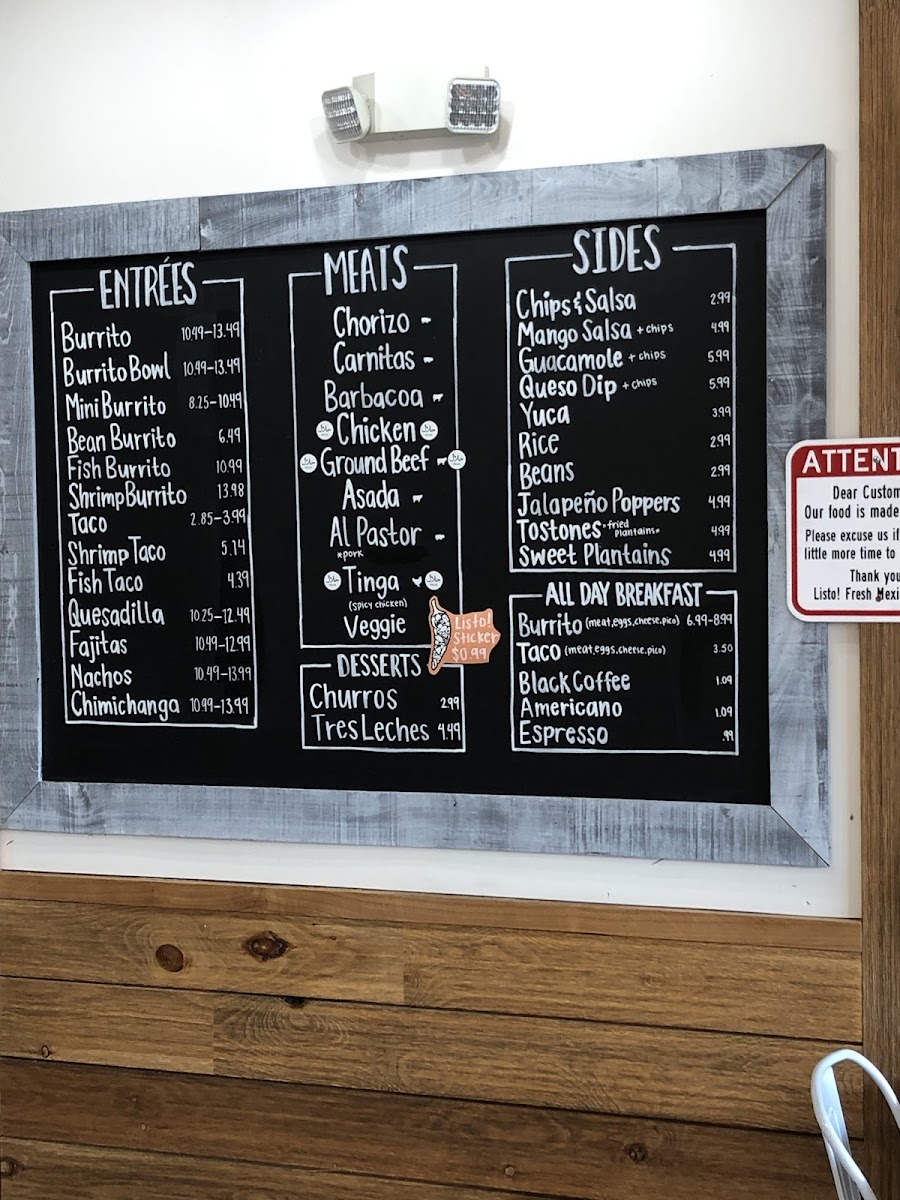 ENTRÉES
Burrito 10.49-13.49
Burrito Bowl 10.49-13.49
Mini Burrito 8.25-10.49
Bean Burrito 6.49
Fish Burrito 10.99
Shrimp Burrito 13.98
Taco 2.85-3.99
Shrimp Taco 5.14
Fish Taco 4.39
Quesadilla 10.25-12.49
Fajitas 10.49-12.99
Nachos 10.49-13.99
Chimichanga 10.99-13.99
MEATS
Chorizo
Carnitas
Barbacoa
Chicken
Ground Beef
Asada
Al Pastor
*pork
Tinga
(spicy chicken)
Veggie
Listo!
Sticker
$0.99
DESSERTS
Churros 2.99
Tres Leches 4.49
SIDES
Chips & Salsa 2.99
Mango Salsa + chips 4.99
Guacamole + chips 5.99
Queso Dip + chips 5.99
Yuca 3.99
Rice 2.99
Beans 2.99
Jalapeño Poppers 4.99
Tostones *fried plantains* 4.99
Sweet Plantains 4.99
ALL DAY BREAKFAST
Burrito (meat, eggs, cheese, pico) 6.99-8.99
Taco (meat, eggs, cheese, pico) 3.50
Black Coffee 1.09
Americano 1.09
Espresso .99
ATTENT
Dear Custom
Our food is made
Please excuse us if
little more time to
Thank you
Listo! Fresh Mexi